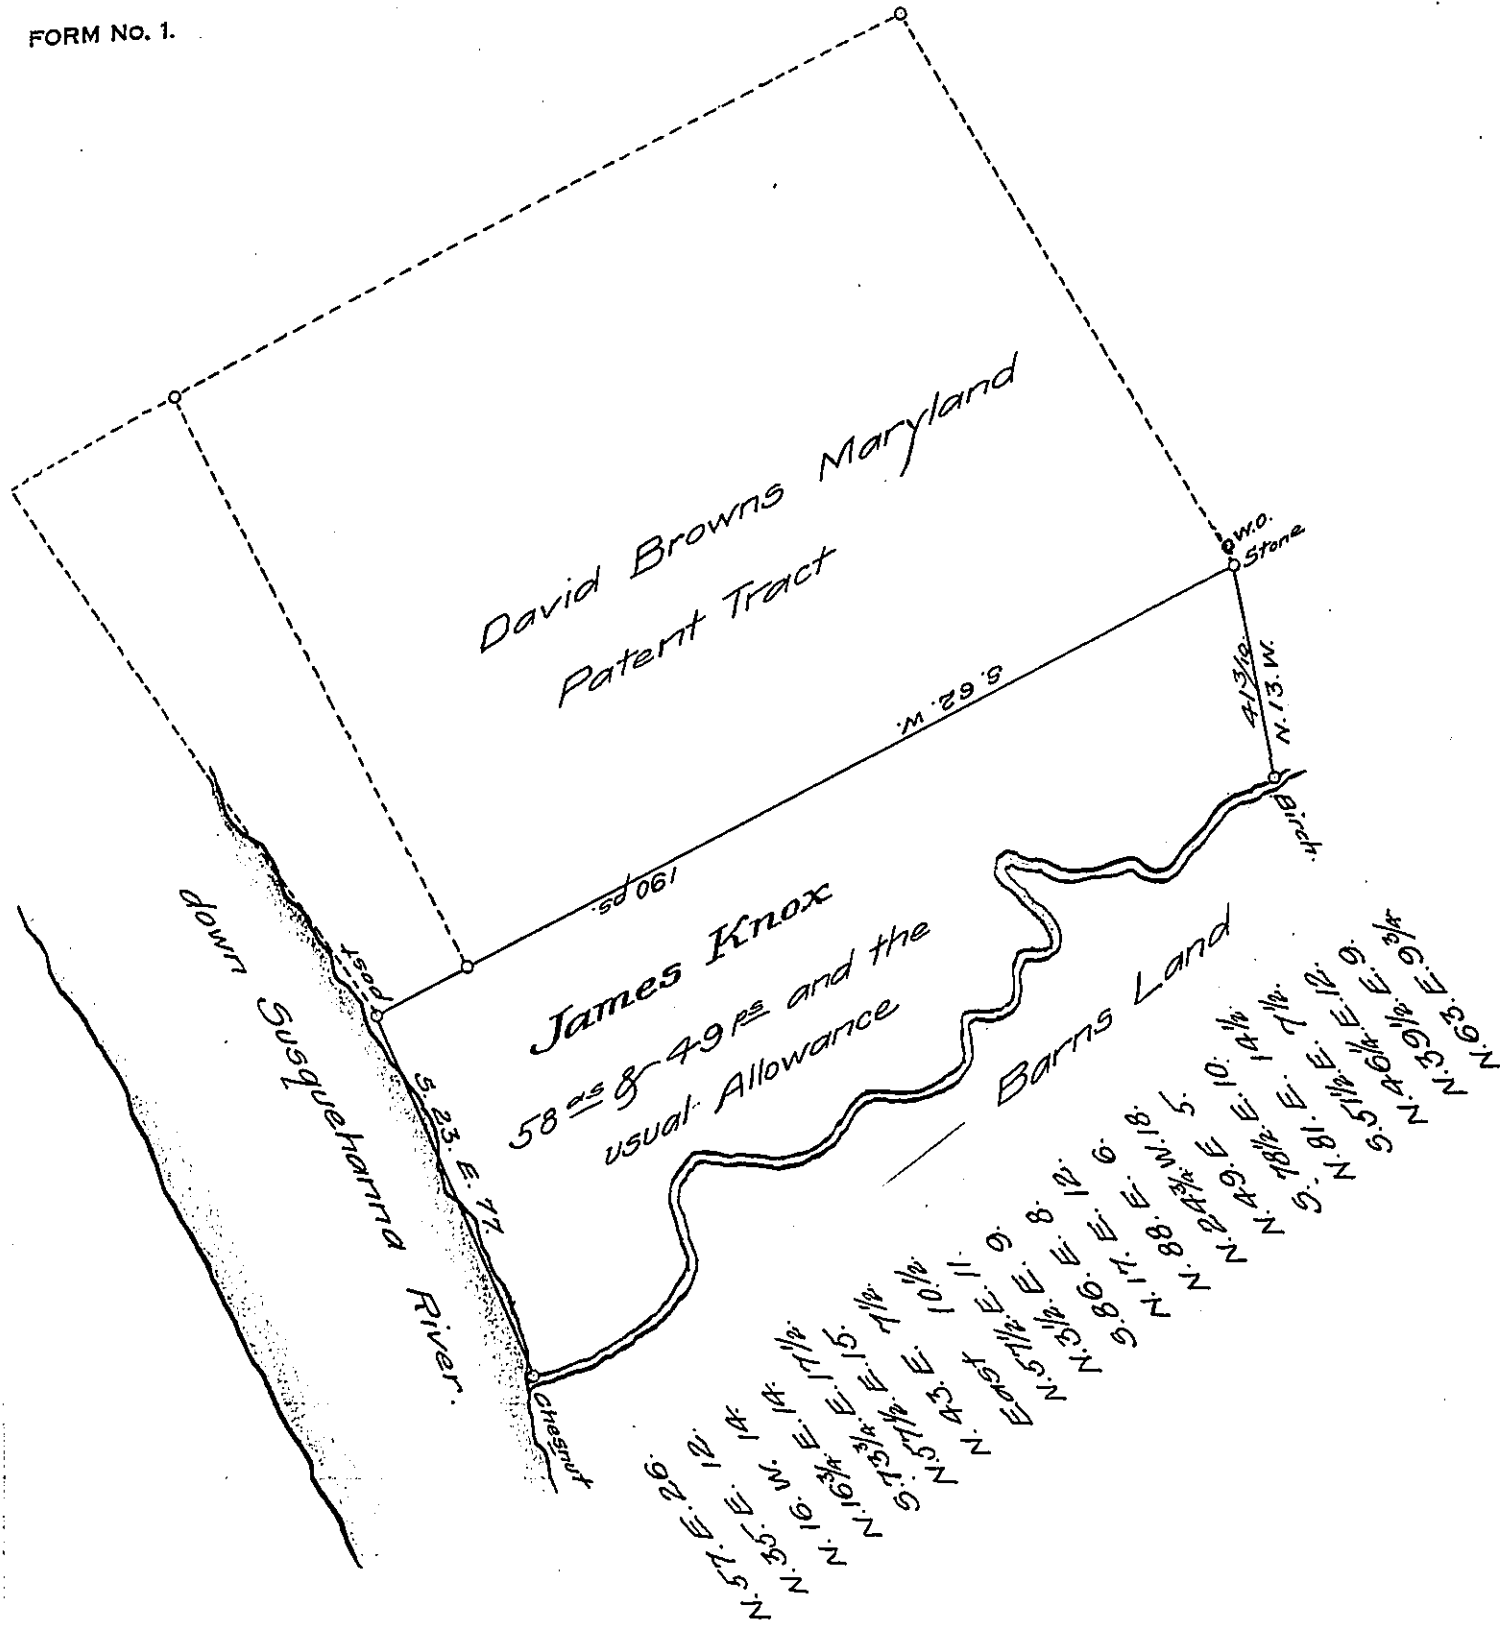 FORM No. 1.
David Browns Maryland
Patent Tract
W.O.
Stone
S. 62. W.
190 ps.
41 3/10.
N. 13. W.
Birch.
post
James Knox
58 as & 49 ps and the
usual Allowance
Barns Land
down Susquehanna River.
S. 23. E. 77.
Chesnut
N. 57. E. 26.
N. 35. E. 12.
N. 16. W. 14.
N. 16 3/4. E. 14.
S. 73 3/4. E. 17 1/2.
N. 57 1/2. E. 15.
N. 43. E. 7 1/2.
East 10 1/2.
N. 57 1/2. E. 11.
N. 3 1/2. E. 9.
S. 86. E. 8.
N. 17. E. 12.
N. 88. E. 6.
N. 24 3/4. W. 18.
N. 49. E 5.
S. 78 1/2. E. 10.
N. 81. E. 14 1/2.
S. 51 1/2. E. 7 1/2.
N. 46 1/4. E. 12.
N. 39 1/2. E. 9.
N. 63. E. 9 3/4